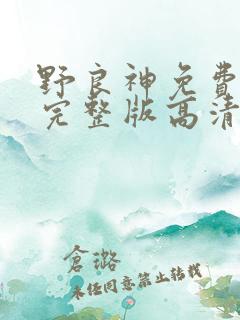 野良神免費
完整版高清
倉璐
未任同意禁止转载